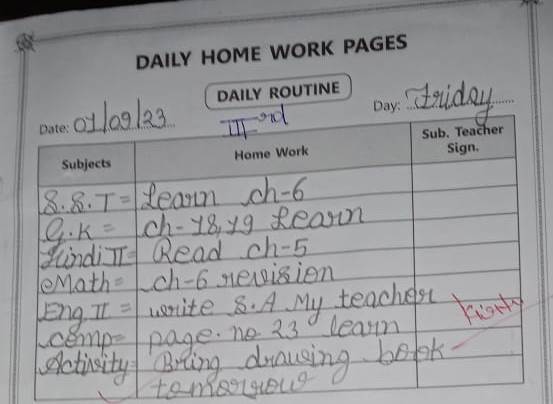 DAILY HOME WORK PAGES
DAILY ROUTINE
Date: 01/09/23 IIIrd Day: Friday
Subjects Home Work Sub. Teacher Sign.
S.S.T = Learn ch-6
G.K = ch-18,19 Learn
Hindi II = Read ch-5
Math = ch-6 revision
Eng II = write S.A My teacher
Comp = page no 23 learn
Activity = Bring drawing book
tomorrow